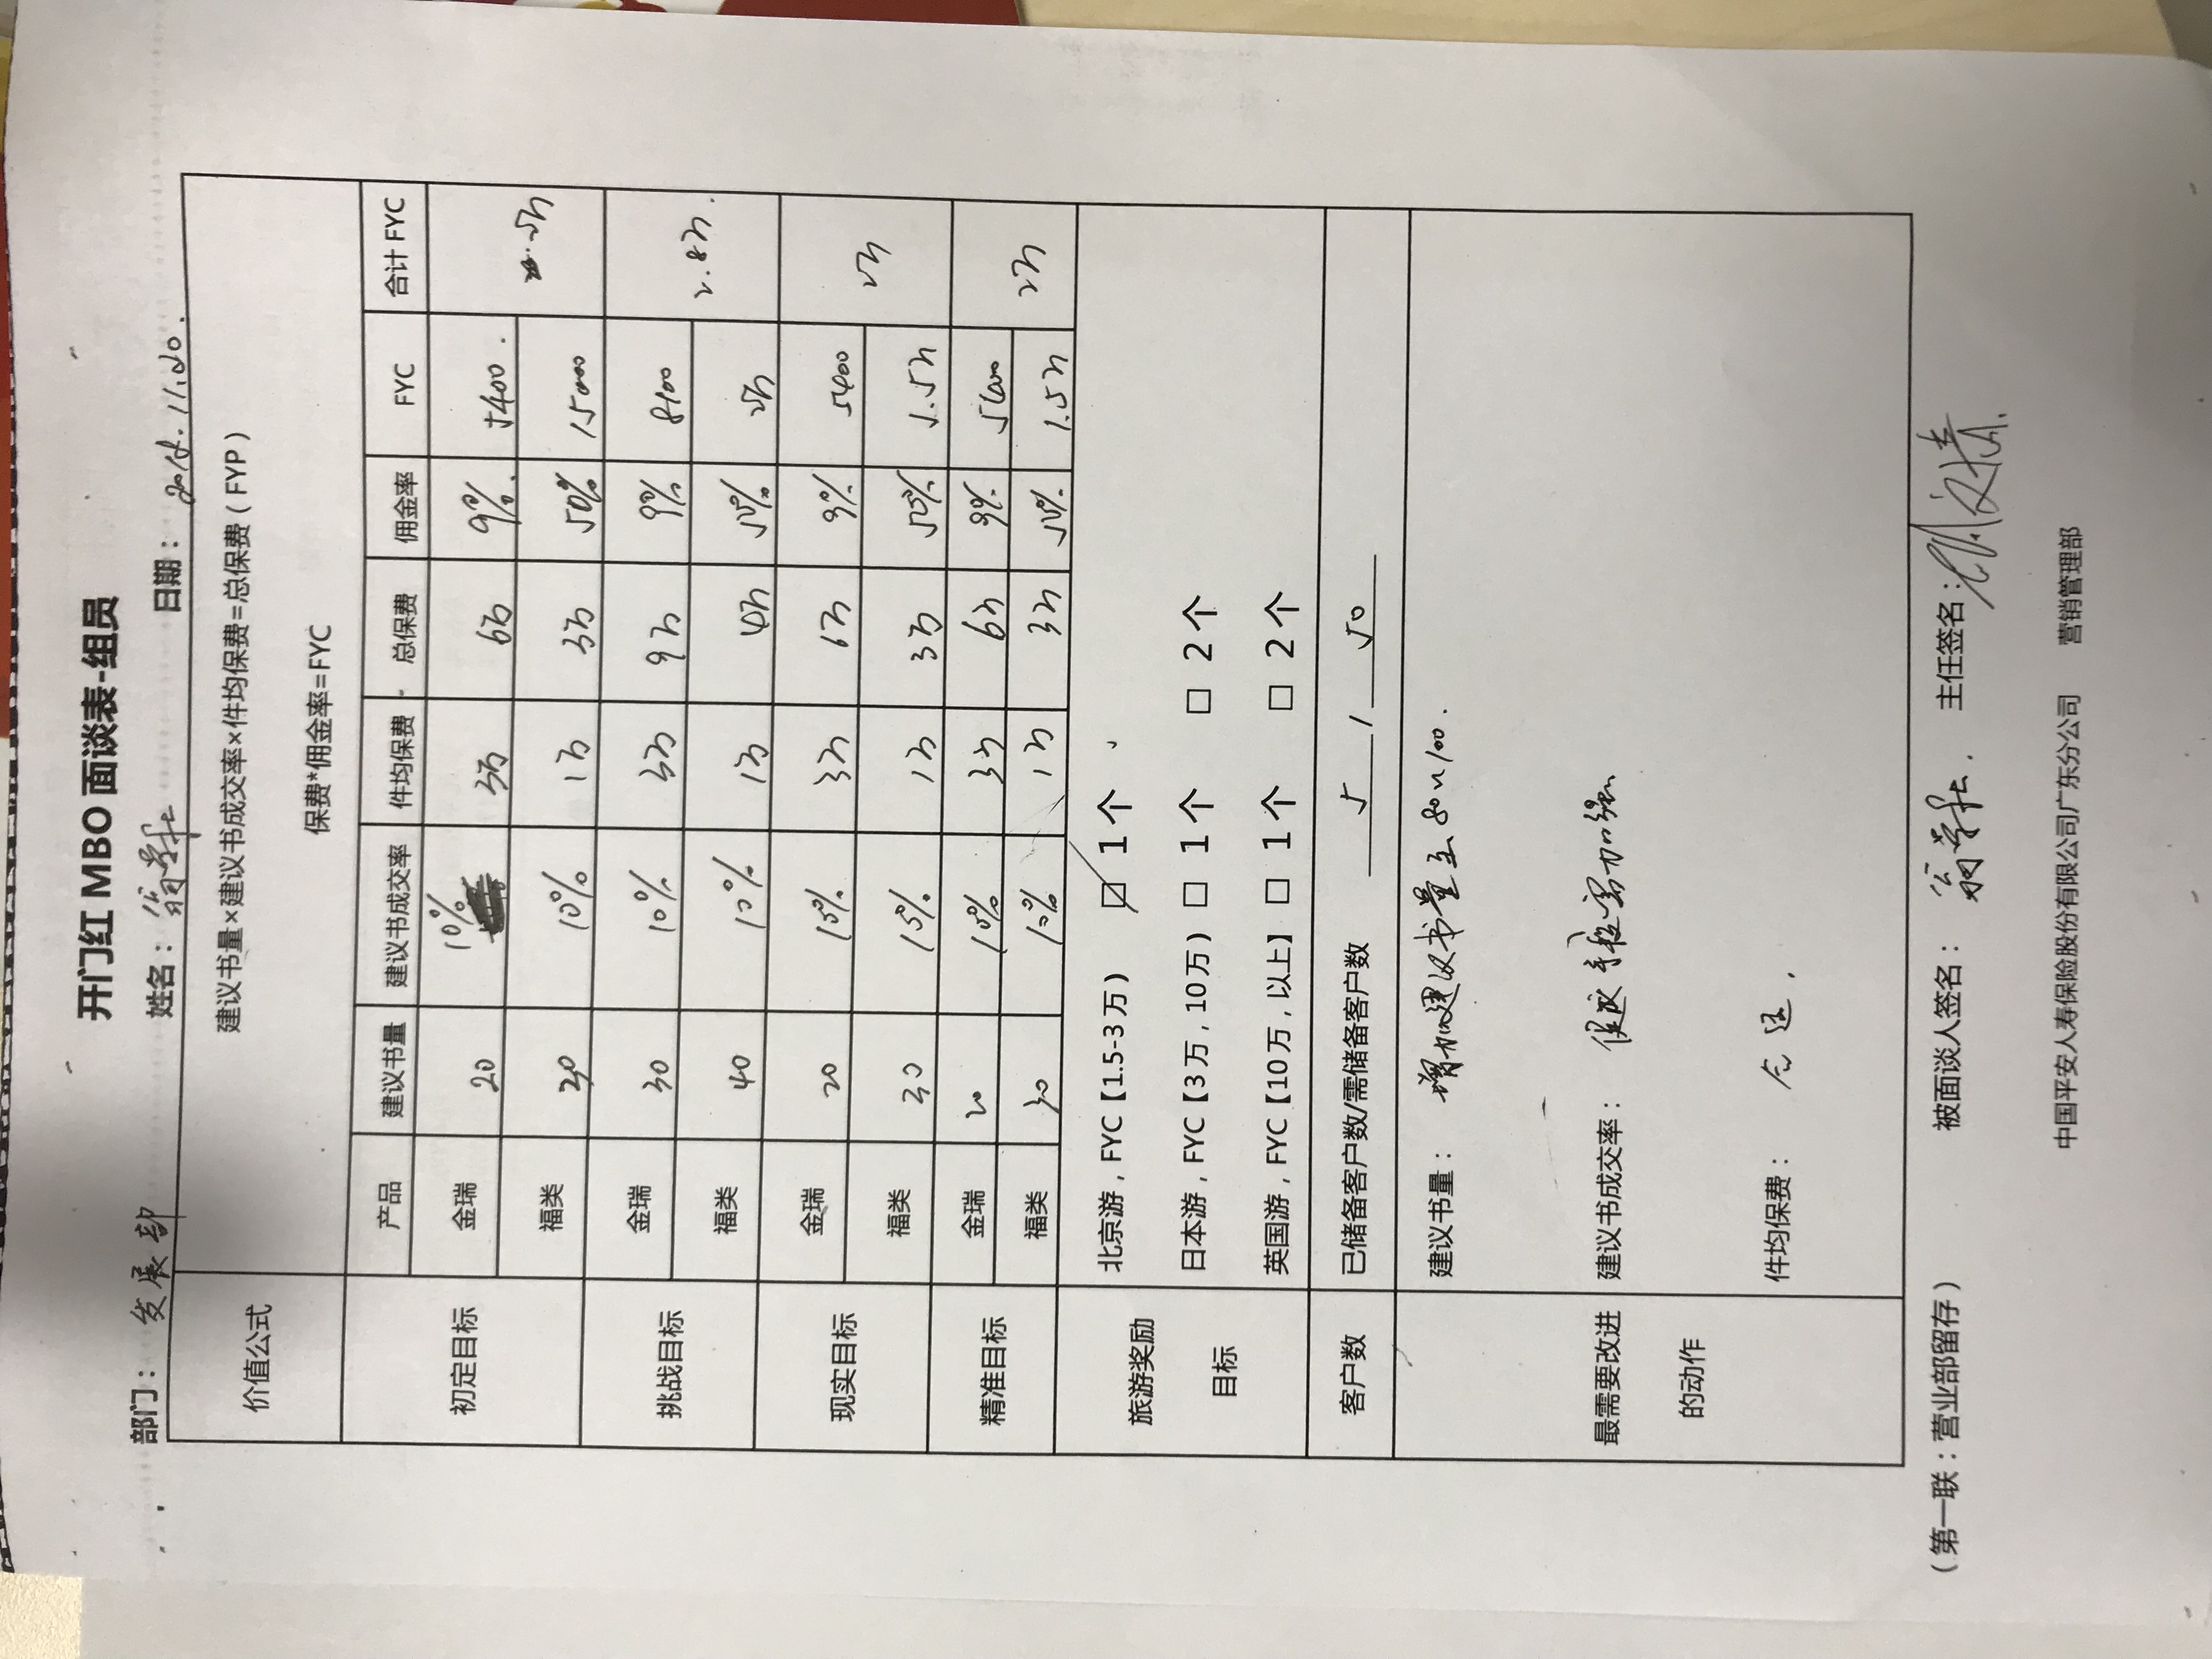 开门红 MBO 面谈表-组员
部门： 发展部 姓名： 日期：
价值公式 建议书量×建议书成交率×件均保费=总保费（FYP）
保费*佣金率=FYC
产品 建议书量 建议书成交率 件均保费 总保费 佣金率 FYC 合计 FYC
初定目标
金瑞 20 10% 3万 6万 9% 5400
福类 10% 1万 3万 50% 15000
挑战目标
金瑞 30 10% 3万 9万 9% 8100 2.8万
福类 40 10% 1万 4万 50% 2万
现实目标
金瑞 20 10% 3万 6万 9% 5400 2万
福类 30 1万 3万 50% 1.5万
精准目标
金瑞 20 10% 3万 6万 9% 5400 2万
福类 30 10% 1万 3万 50% 1.5万
旅游奖励目标
北京游，FYC【1.5-3万） ☑ 1个
日本游，FYC【3万，10万） □ 1个 □ 2个
英国游，FYC【10万，以上】 □ 1个 □ 2个
客户数 已储备客户数/需储备客户数 5 / 50
最需要改进的动作
建议书量： 增加建议书量至80~100.
建议书成交率： 促成 需加强
件均保费： 合适.
（第一联：营业部留存） 被面谈人签名： 主任签名：
中国平安人寿保险股份有限公司广东分公司 营销管理部